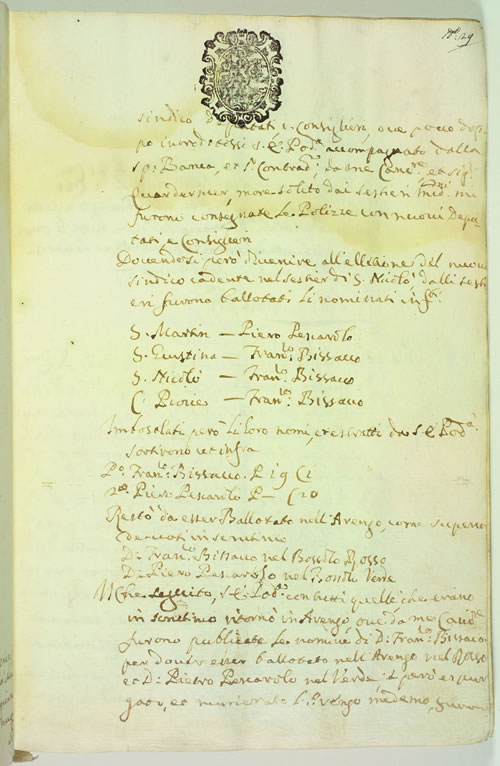 N.º 29
sindico Deputati e Consiglieri, ove poco do-
po introdottosi S. E. Pod.à accompagnato dalla
sp. Banca, et da me Canc.re et sig.r
more solito dai sestieri mi
furono consegnate le Polizze con nuovi Depu-
tati, e Consiglieri
Dovendosi però divenire all'elletione del nuovo
sindico cadente nel sestier di S. Nicolò dalli sesti-
eri furono ballotati li nominati inf.ti
S. Martin — Piero Pescarolo
S. Giustina — Fran.co Bissacco
S. Nicolò — Fran.co Bissacco
C. — Fran.co Bissacco
Imbosolati però li loro nomi, et estratti da S. E. Pod.à
sortirono ut infra
P.º Fran.co Bissacco. P 19 C 1
2.do Piero Pescarolo P — C 20
Restò da esser Ballotato nell'Arengo, come superior
in scrutinio
D. Fran.co Bissacco nel Bossolo Rosso
D. Piero Pescarolo nel Bossolo Verde
Il che seguito, S. E. Pod.à con tutti quelli che erano
in scrutinio ritornò in Arengo, ove da me Canc.
furono publicate le nomine di D. Fran.co Bissacco
per dover esser ballotato nell'Arengo nel Rosso
et D. Pietro Pescarolo nel Verde: e però espur-
gato, et numerato l'Arengo medemo, furono